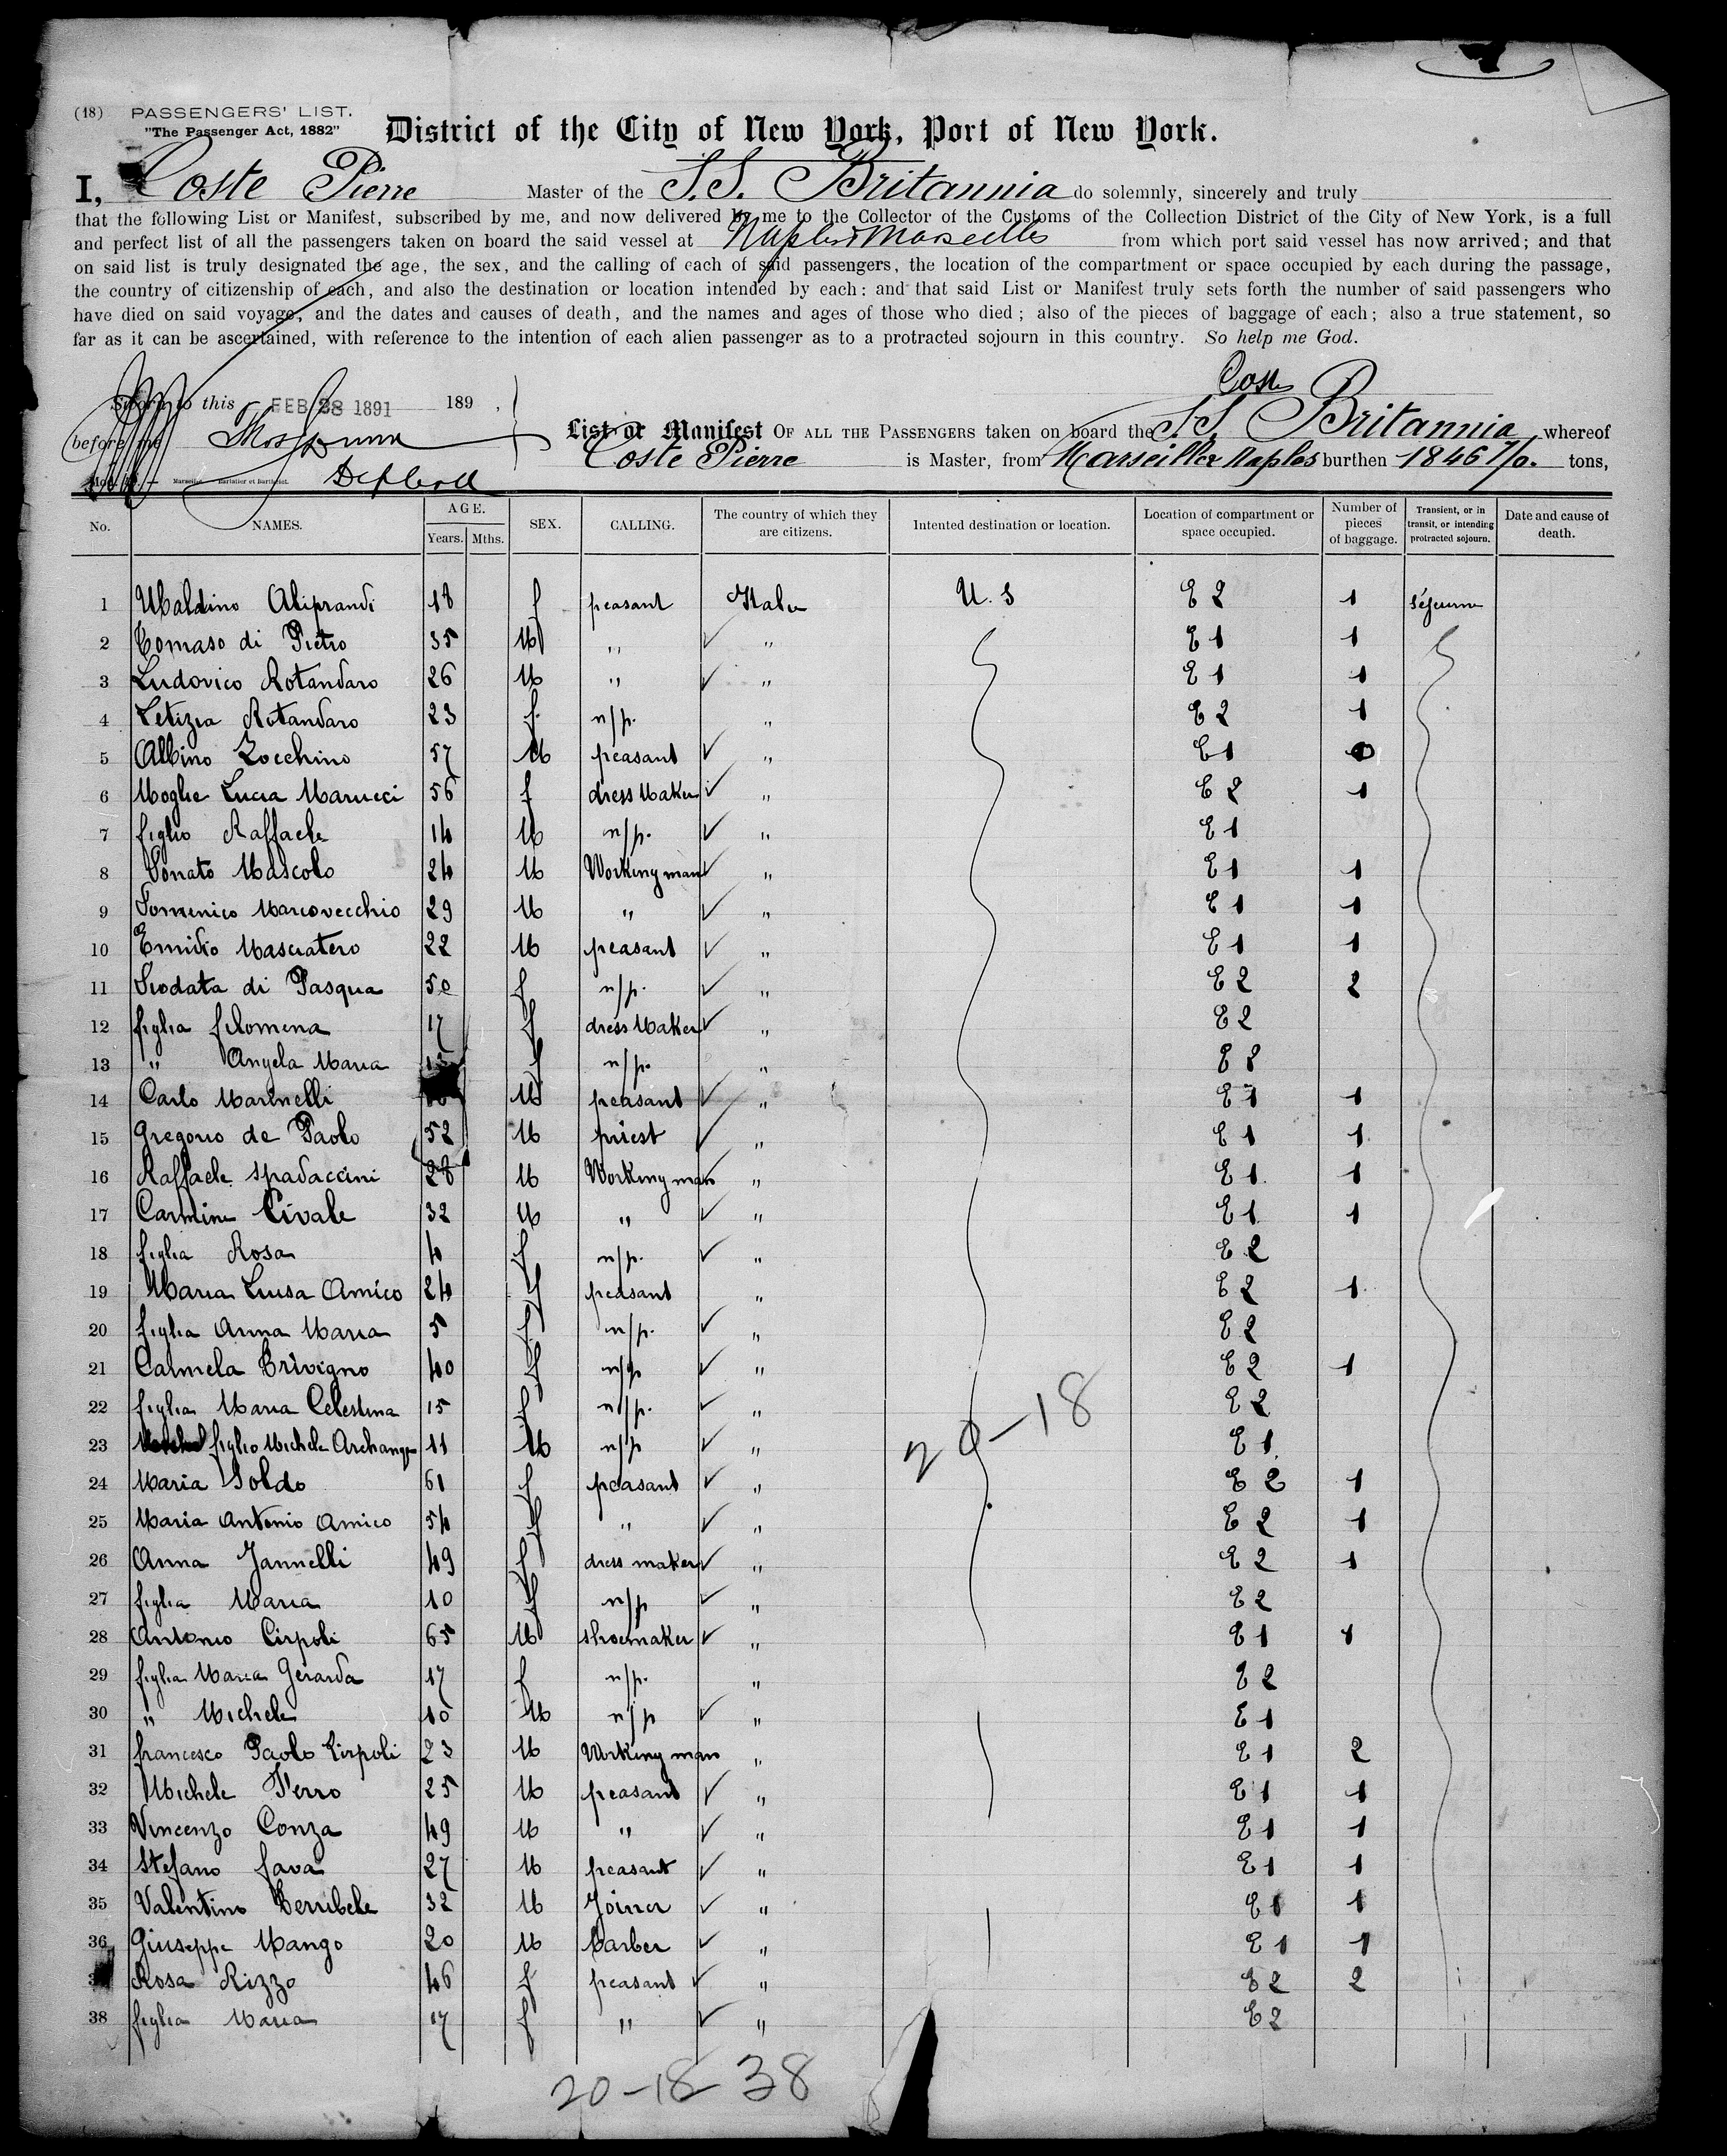 (18) PASSENGERS' LIST.
"The Passenger Act, 1882"
District of the City of New York, Port of New York.
I, Coste Pierre Master of the S.S. Britannia do solemnly, sincerely and truly
that the following List or Manifest, subscribed by me, and now delivered by me to the Collector of the Customs of the Collection District of the City of New York, is a full
and perfect list of all the passengers taken on board the said vessel at Naples & Marseilles from which port said vessel has now arrived; and that
on said list is truly designated the age, the sex, and the calling of each of said passengers, the location of the compartment or space occupied by each during the passage,
the country of citizenship of each, and also the destination or location intended by each; and that said List or Manifest truly sets forth the number of said passengers who
have died on said voyage, and the dates and causes of death, and the names and ages of those who died; also of the pieces of baggage of each; also a true statement, so
far as it can be ascertained, with reference to the intention of each alien passenger as to a protracted sojourn in this country. So help me God.
Coste
Sworn to this FEB 28 1891 189 ,
before me
List or Manifest OF ALL THE PASSENGERS taken on board the S.S. Britannia whereof
Coste Pierre is Master, from Marseilles Naples burthen 1846 tons,
No. NAMES. AGE. Years. Mths. SEX. CALLING. The country of which they are citizens. Intented destination or location. Location of compartment or space occupied. Number of pieces of baggage. Transient, or in transit, or intending protracted sojourn. Date and cause of death.
1 Ubaldino Aliprandi 18 f peasant Italy U.S E 2 1 séjourne
2 Tomaso di Pietro 35 M " " E 1 1
3 Ludovico Rotandaro 26 M " " E 1 1
4 Letizia Rotandaro 23 f n/p. " E 2 1
5 Albino Zocchino 57 M peasant " E 1
6 Moglie Lucia Marucci 56 f dress Maker " E 2 1
7 figlio Raffaele 14 M n/p. " E 1
8 Donato Mascolo 24 M Working man " E 1 1
9 Domenico Marcovecchio 29 M " " E 1 1
10 Emidio Masciatero 22 M peasant " E 1 1
11 Diodata di Pasqua 50 f n/p. " E 2 2
12 figlia filomena 17 f dress Maker " E 2
13 " Angela Maria f n/p. " E 2
14 Carlo Marinelli M peasant " E 1 1
15 Gregorio de Paolo 52 M priest " E 1 1
16 Raffaele Spadaccini 28 M Working man " E 1 1
17 Carmine Civale 32 M " " E 1 1
18 figlia Rosa 4 f n/p. " E 2
19 Maria Luisa Amico 24 f peasant " E 2 1
20 figlia Anna Maria 5 f n/p. " E 2
21 Carmela Trivigno 40 f n/p " E 2 1
22 figlia Maria Celestina 15 f n/p. " E 2
23 figlio Michele Archange 11 M n/p " E 1
20-18
24 Maria Soldo 61 f peasant " E 2 1
25 Maria Antonio Amico 54 f " " E 2 1
26 Anna Jannelli 49 f dress maker " E 2 1
27 figlia Maria 10 f n/p " E 2
28 Antonio Cirpoli 65 M shoemaker " E 1 1
29 figlia Maria Gerarda 17 f n/p. " E 2
30 " Michele 10 M n/p " E 1
31 francesco Paolo Cirpoli 23 M Working man " E 1 2
32 Michele Perro 25 M peasant " E 1 1
33 Vincenzo Conza 49 M " " E 1 1
34 Stefano fava 27 M peasant " E 1 1
35 Valentino Terribele 32 M Joiner " E 1 1
36 Giuseppe Mango 20 M barber " E 1 1
Rosa Rizzo 46 f peasant " E 2 2
38 figlia Maria 17 f " " E 2
20-18 38